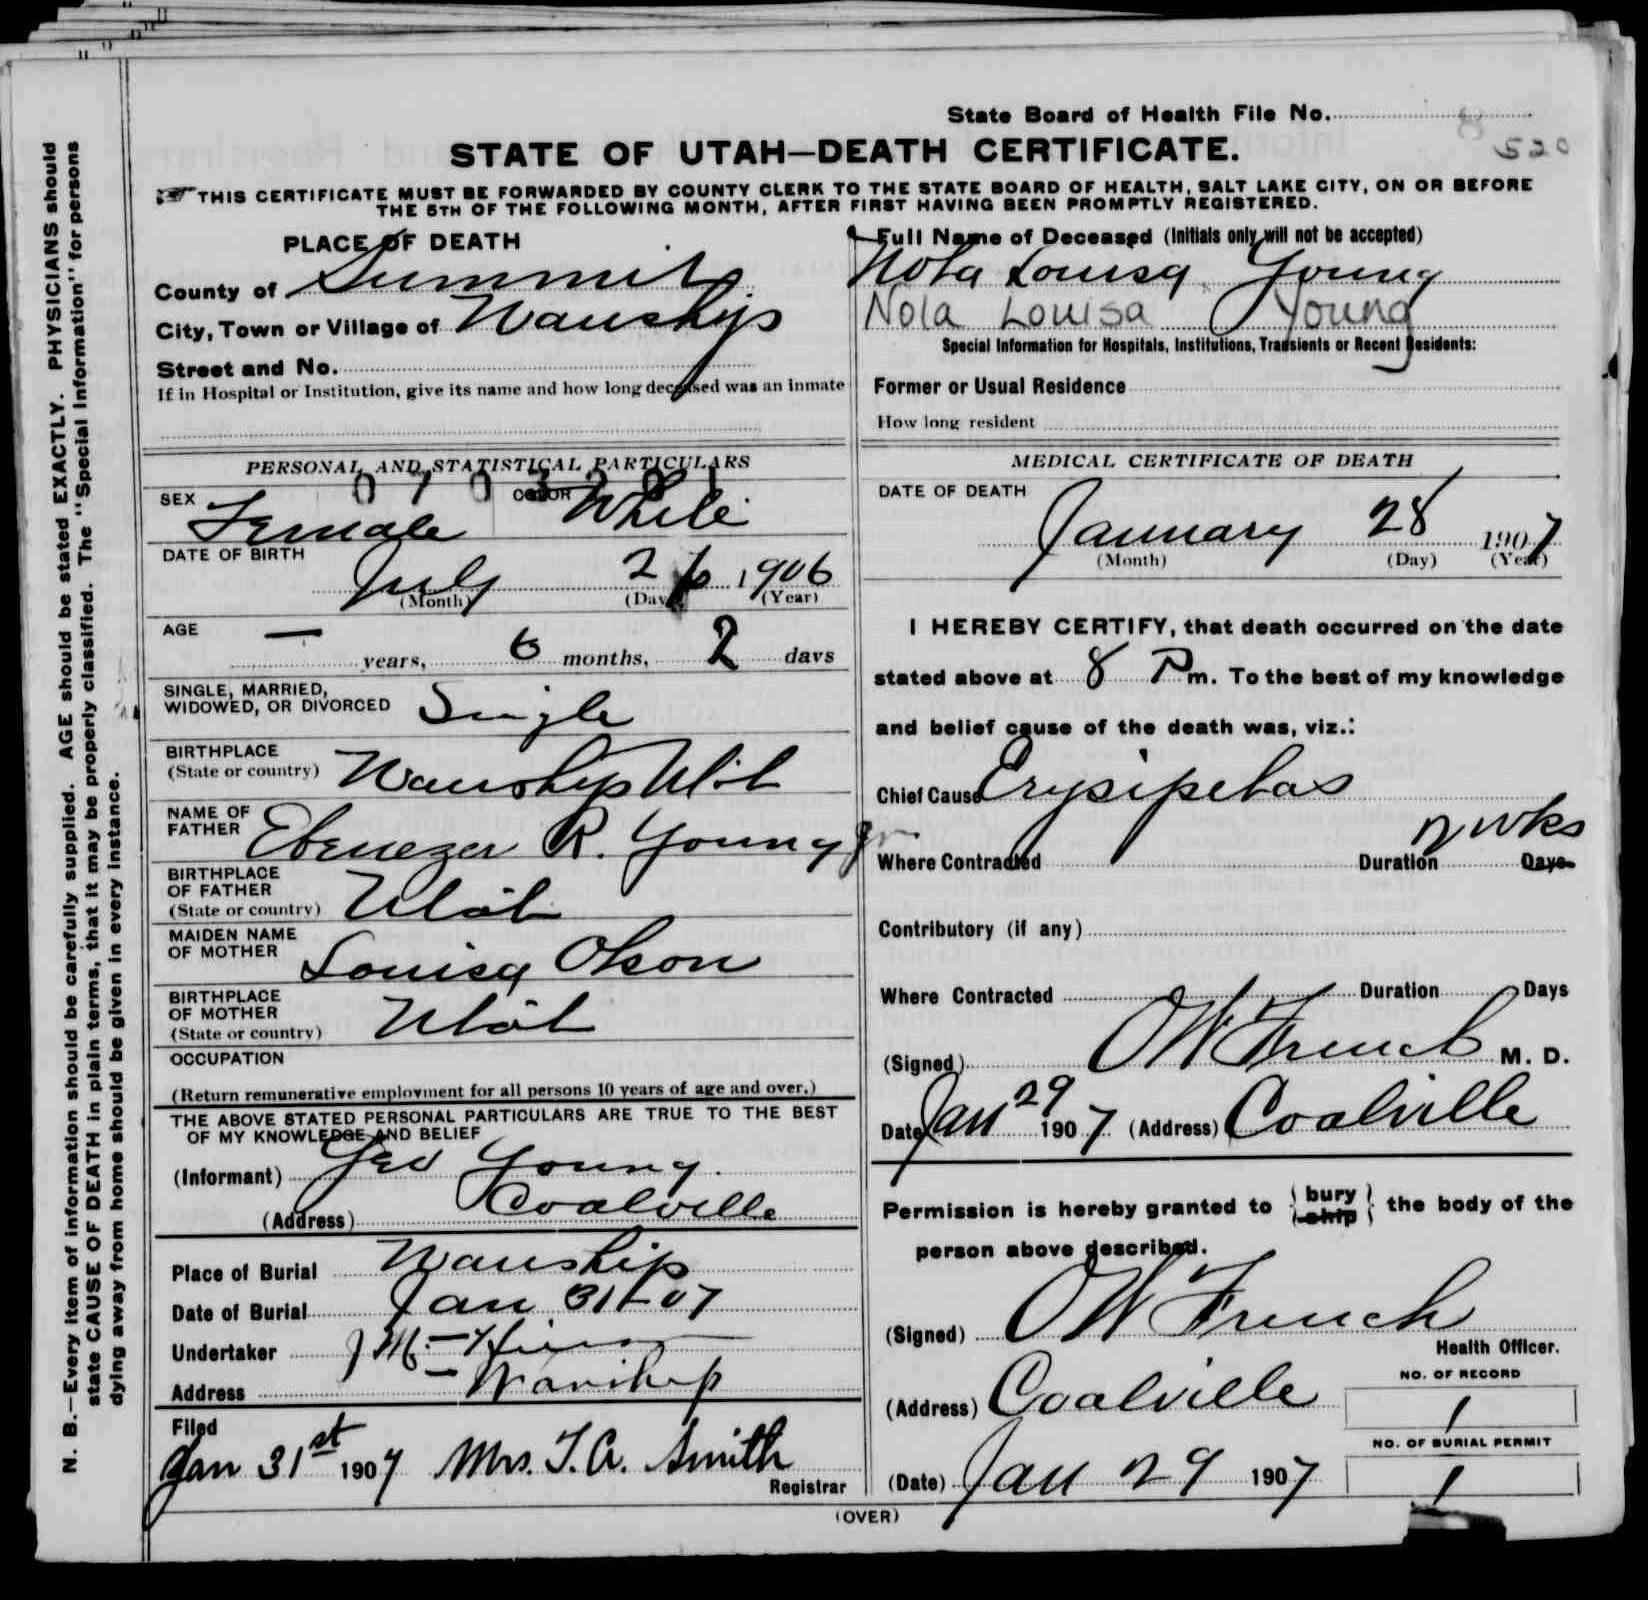 State Board of Health File No. 8
520
STATE OF UTAH—DEATH CERTIFICATE.
THIS CERTIFICATE MUST BE FORWARDED BY COUNTY CLERK TO THE STATE BOARD OF HEALTH, SALT LAKE CITY, ON OR BEFORE
THE 5TH OF THE FOLLOWING MONTH, AFTER FIRST HAVING BEEN PROMPTLY REGISTERED.
PLACE OF DEATH
County of Summit
City, Town or Village of Wanship
Street and No.
If in Hospital or Institution, give its name and how long deceased was an inmate
Full Name of Deceased (Initials only will not be accepted)
Nola Louisa Young
Nola Louisa Young
Special Information for Hospitals, Institutions, Transients or Recent Residents:
Former or Usual Residence
How long resident
PERSONAL AND STATISTICAL PARTICULARS
SEX Female COLOR White
DATE OF BIRTH
July 26 1906
(Month) (Day) (Year)
AGE — years, 6 months, 2 days
SINGLE, MARRIED,
WIDOWED, OR DIVORCED Single
BIRTHPLACE
(State or country) Wanship Utah
NAME OF
FATHER Ebenezer R. Young Jr
BIRTHPLACE
OF FATHER
(State or country) Utah
MAIDEN NAME
OF MOTHER Louisa Olson
BIRTHPLACE
OF MOTHER
(State or country) Utah
OCCUPATION
(Return remunerative employment for all persons 10 years of age and over.)
THE ABOVE STATED PERSONAL PARTICULARS ARE TRUE TO THE BEST
OF MY KNOWLEDGE AND BELIEF
(Informant) Geo Young.
(Address) Coalville
Place of Burial Wanship
Date of Burial Jan 31st 07
Undertaker J M
Address Wanship
Filed
Jan 31st 1907 Mrs. T. A. Smith
Registrar
MEDICAL CERTIFICATE OF DEATH
DATE OF DEATH
January 28 1907
(Month) (Day) (Year)
I HEREBY CERTIFY, that death occurred on the date
stated above at 8 P m. To the best of my knowledge
and belief cause of the death was, viz.:
Chief Cause Erysipelas
Where Contracted Duration 2 wks Days
Contributory (if any)
Where Contracted Duration Days
(Signed) O W French M. D.
Date Jan 29 1907 (Address) Coalville
Permission is hereby granted to { bury ship } the body of the
person above described.
(Signed) O W French
Health Officer.
(Address) Coalville
(Date) Jan 29 1907
NO. OF RECORD
1
NO. OF BURIAL PERMIT
1
(OVER)
N. B.—Every item of information should be carefully supplied. AGE should be stated EXACTLY. PHYSICIANS should
state CAUSE OF DEATH in plain terms, that it may be properly classified. The "Special Information" for persons
dying away from home should be given in every instance.